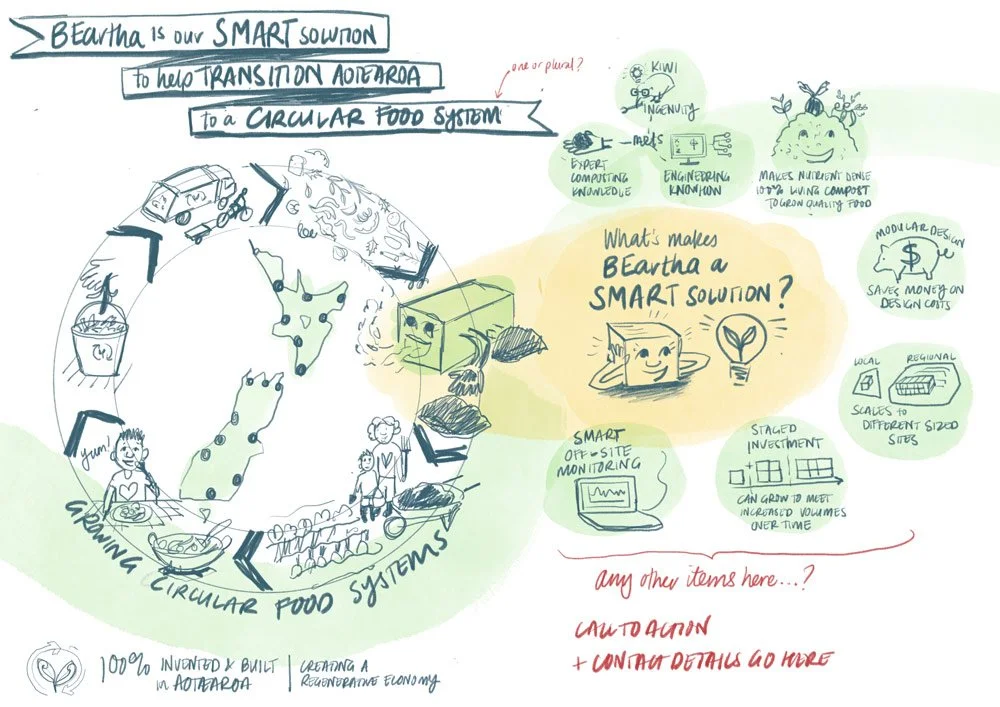 BEartha is our SMART SOLUTION
to help TRANSITION AOTEAROA
to a CIRCULAR FOOD SYSTEM
one or plural?
KIWI
INGENUITY
- meets
EXPERT
COMPOSTING
KNOWLEDGE
ENGINEERING
KNOWHOW
MAKES NUTRIENT DENSE
100% LIVING COMPOST
TO GROW QUALITY FOOD
What's makes
BEartha a
SMART SOLUTION?
MODULAR DESIGN
$
SAVES MONEY ON
DESIGN COSTS
LOCAL
REGIONAL
SCALES TO
DIFFERENT SIZED
SITES
STAGED
INVESTMENT
CAN GROW TO MEET
INCREASED VOLUMES
OVER TIME
SMART
OFF-SITE
MONITORING
yum!
GROWING CIRCULAR FOOD SYSTEMS
any other items here...?
CALL TO ACTION
+ CONTACT DETAILS GO HERE
100% INVENTED & BUILT
in AOTEAROA
CREATING A
REGENERATIVE ECONOMY